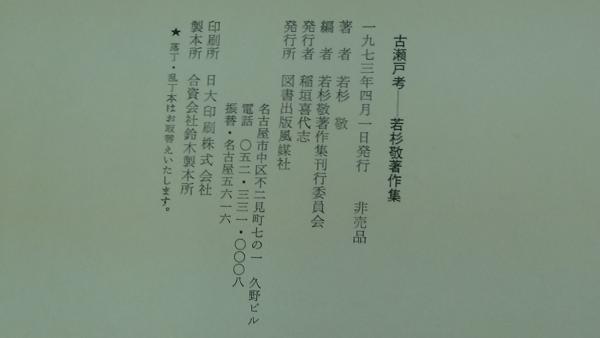 古瀬戸考――若杉敬著作集
一九七三年四月一日発行　非売品
著者　若杉　敬
編者　若杉敬著作集刊行委員会
発行者　稲垣喜代志
発行所　図書出版風媒社
名古屋市中区不二見町七の一　久野ビル
電話　〇五二・三三一・〇〇〇八
振替・名古屋五六一六
印刷所　日大印刷株式会社
製本所　合資会社鈴木製本所
★　落丁・乱丁本はお取替えいたします。